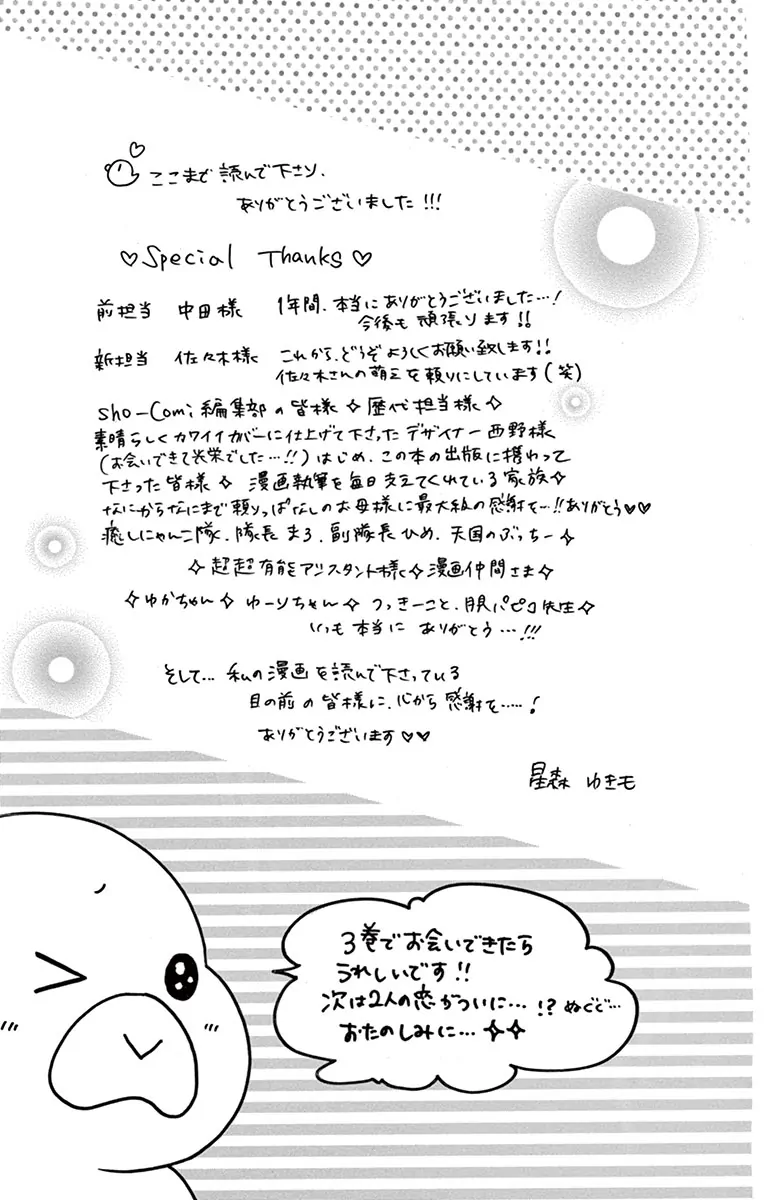 ここまで読んで下さり、
ありがとうございました!!!
♡Special Thanks♡
前担当 中田様 1年間、本当にありがとうございました…!
今後も頑張ります!!
新担当 佐々木様 これから、どうぞよろしくお願い致します!!
佐々木さんの萌えを頼りにしています(笑)
Sho-Comi編集部の皆様✧歴代担当様✧
素晴らしくカワイイカバーに仕上げて下さったデザイナー西野様
(お会いできて光栄でした…!!)はじめ、この本の出版に携わって
下さった皆様✧ 漫画執筆を毎日支えてくれている家族✧
なにからなにまで頼りっぱなしのお母様に最大級の感謝を…!!ありがとう♡♡
癒しにゃんこ隊、隊長まろ、副隊長ひめ、天国のぶっちー✧
✧超超有能アシスタント様✧漫画仲間さま✧
✧ゆかちゃん✧ ゆーりちゃん✧ つっきーこと、月居パピコ先生✧
いつも本当に ありがとう…!!!
そして… 私の漫画を読んで下さっている
目の前の皆様に、心から感謝を……!
ありがとうございます♡♡
星森 ゆきも
3巻でお会いできたら
うれしいです!!
次は2人の恋がついに…!? ぬぐぐ…
おたのしみに…✧✧